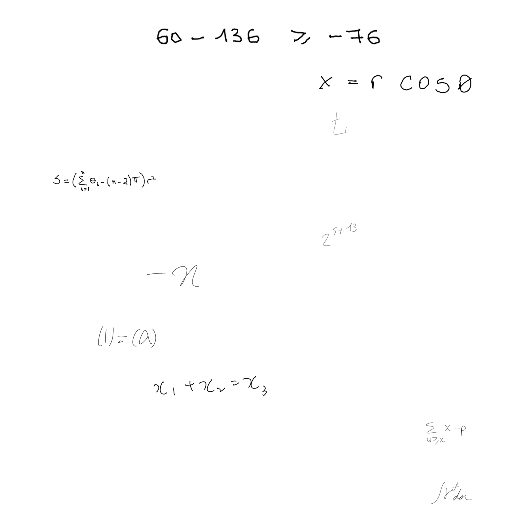 60 - 136 ⩾ -76
x = r cosθ
t_i
S = (∑_{i=1}^{n} θ_i - (n-2)π) r²
2^{5+13}
-n
(1) = (a)
x_1 + x_2 = x_3
∑_{u⩾x} x - p